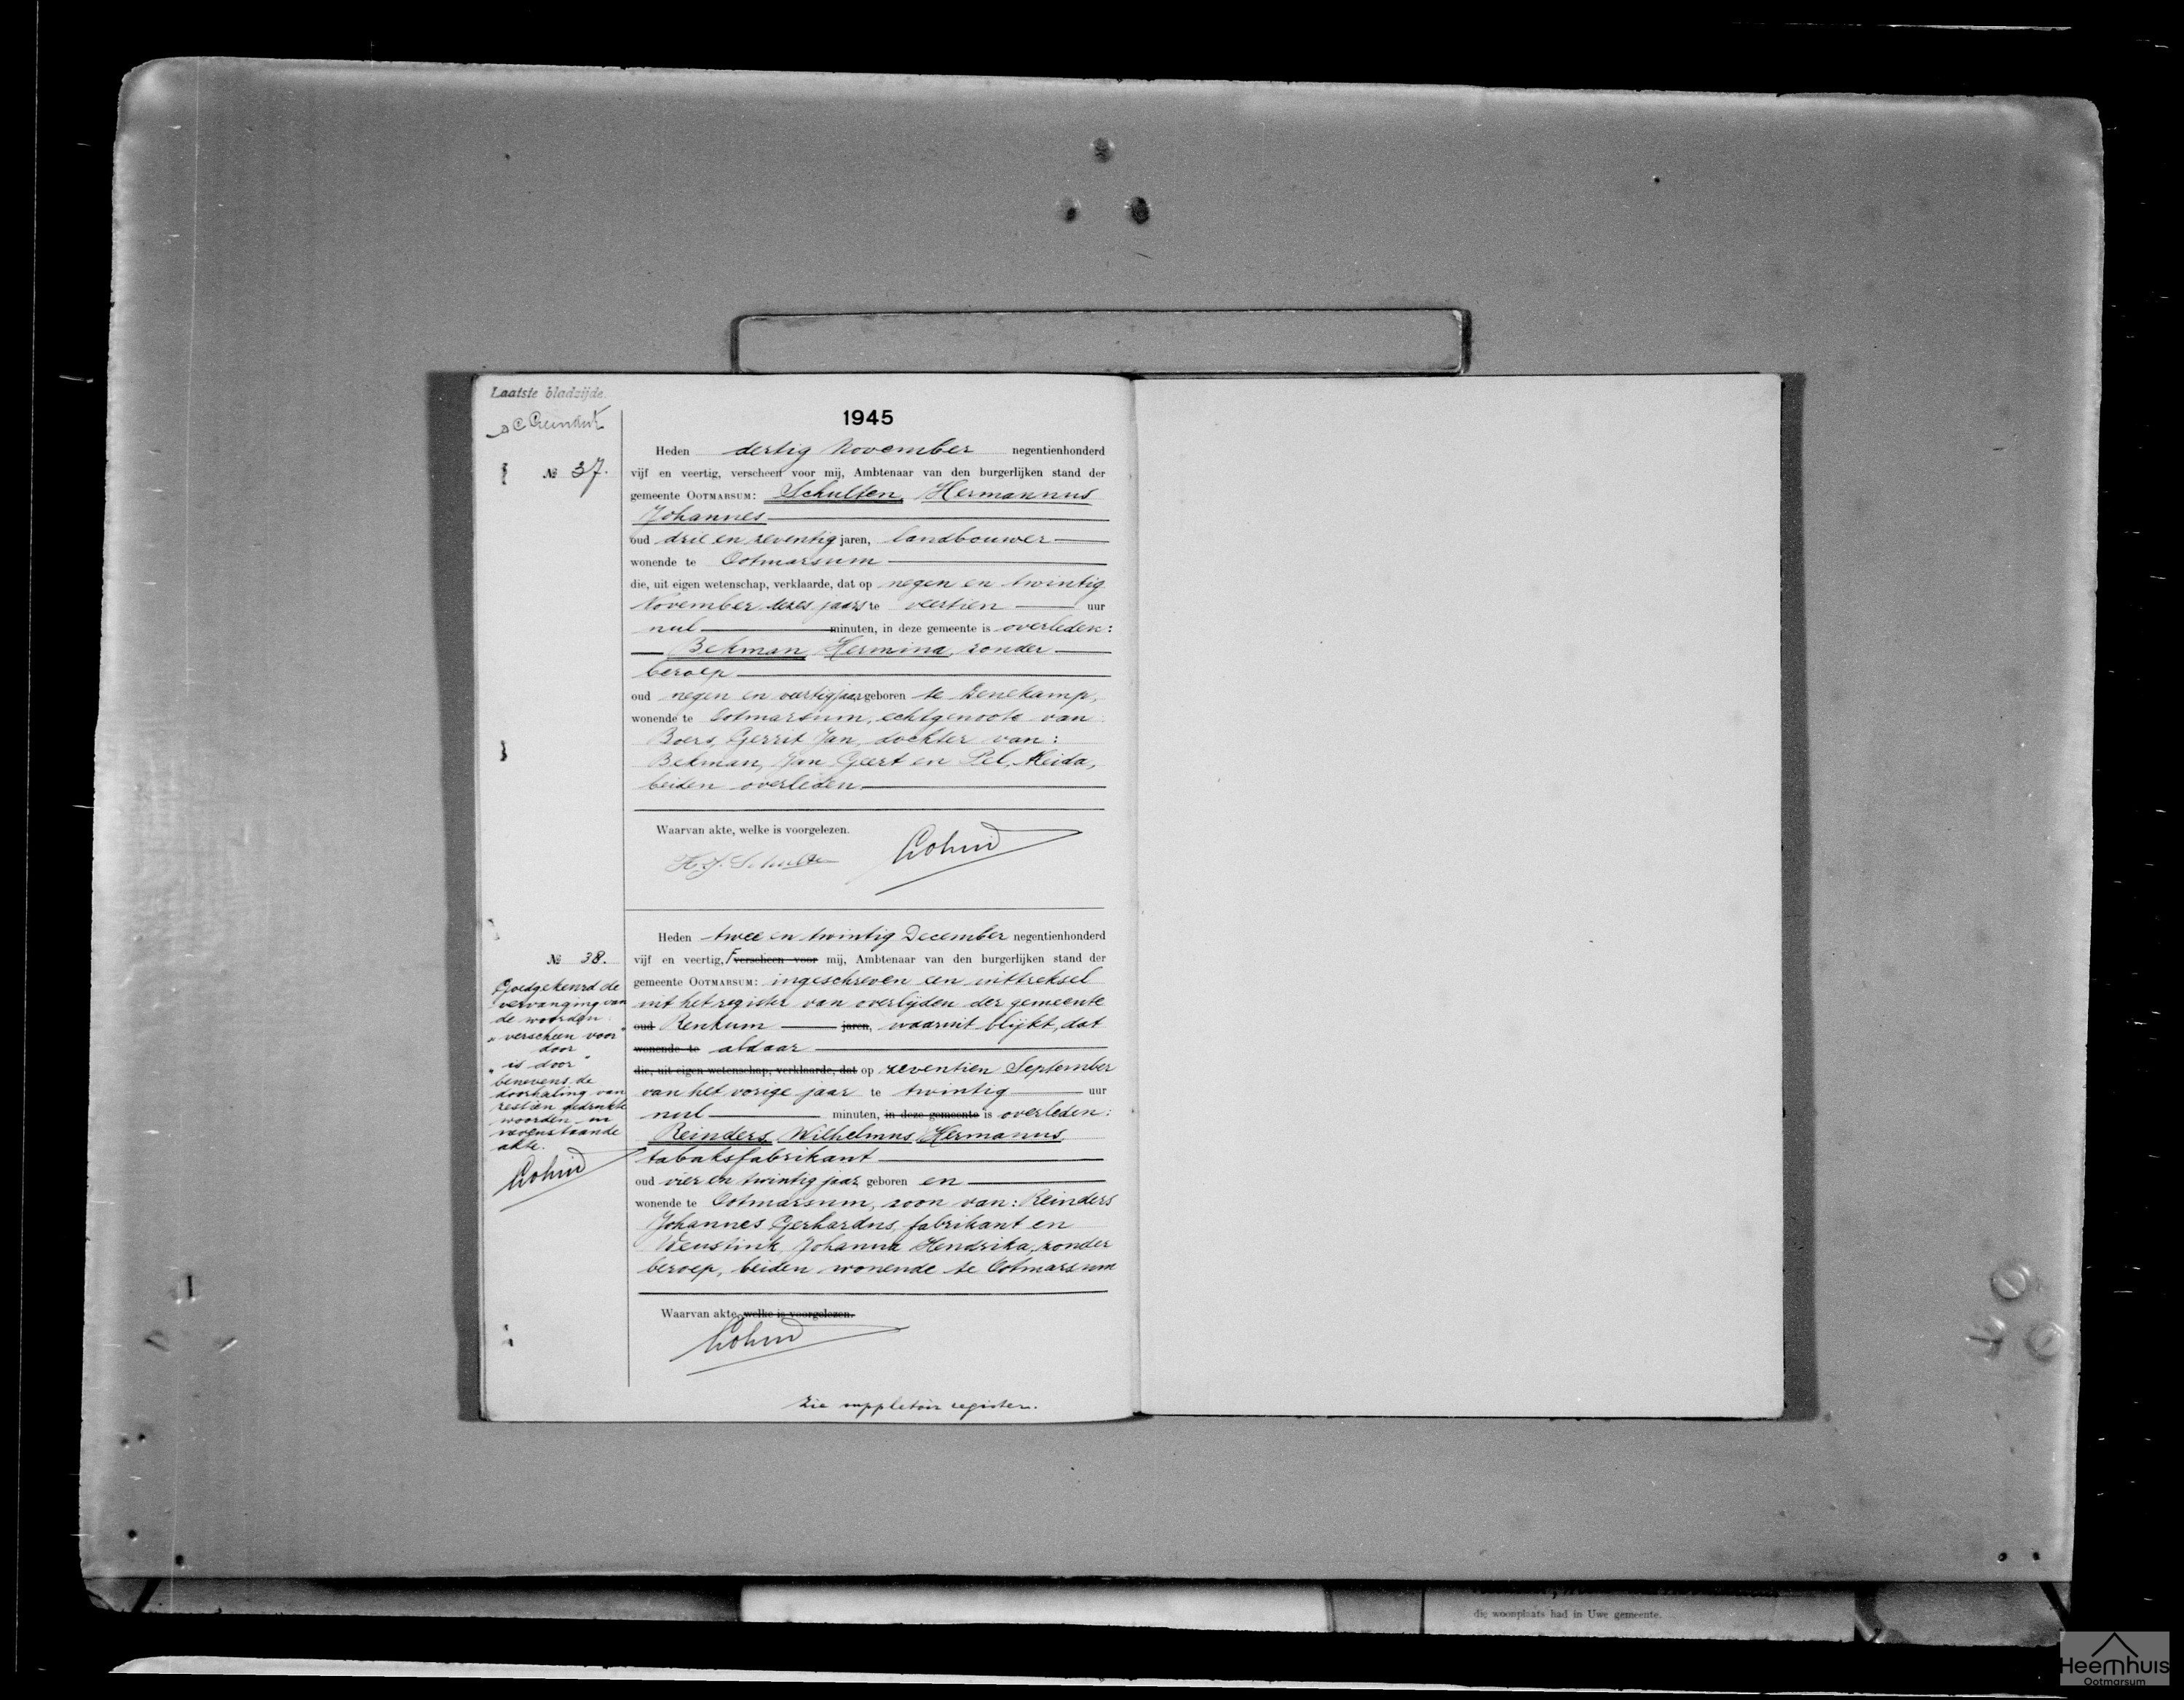 Laatste bladzijde.
1945
№ 37.
Heden dertig November negentienhonderd
vijf en veertig, verscheen voor mij, Ambtenaar van den burgerlijken stand der
gemeente OOTMARSUM: Schulten Hermannus
Johannes
oud drie en zeventig jaren, landbouwer
wonende te Ootmarsum
die, uit eigen wetenschap, verklaarde, dat op negen en twintig
November dezes jaars te veertien uur
nul minuten, in deze gemeente is overleden:
Bekman Hermina, zonder
beroep
oud negen en veertig jaar geboren te Denekamp,
wonende te Ootmarsum, echtgenoote van
Boers, Gerrit Jan, dochter van:
Bekman, Jan Geert en Pel, Aleida,
beiden overleden
Waarvan akte, welke is voorgelezen.
H. J. Schulte
№ 38.
Goedgekeurd de
vervanging van
de woorden:
„verscheen voor"
door
„is door"
benevens de
doorhaling van
zestien gedrukte
woorden in
nevenstaande
akte.
Heden twee en twintig December negentienhonderd
vijf en veertig, verscheen voor mij, Ambtenaar van den burgerlijken stand der
gemeente OOTMARSUM: ingeschreven een uittreksel
uit het register van overlijden der gemeente
oud Renkum jaren, waaruit blijkt, dat
wonende te aldaar
die, uit eigen wetenschap, verklaarde, dat op zeventien September
van het vorige jaar te twintig uur
nul minuten, in deze gemeente is overleden:
Reinders Wilhelmus Hermanus,
tabaksfabrikant
oud vier en twintig jaar, geboren en
wonende te Ootmarsum, zoon van: Reinders
Johannes Gerhardus, fabrikant en
Weustink, Johanna Hendrika, zonder
beroep, beiden wonende te Ootmarsum
Waarvan akte, welke is voorgelezen.
Zie suppletoir register.
die woonplaats had in Uwe gemeente.
Heemhuis
Ootmarsum